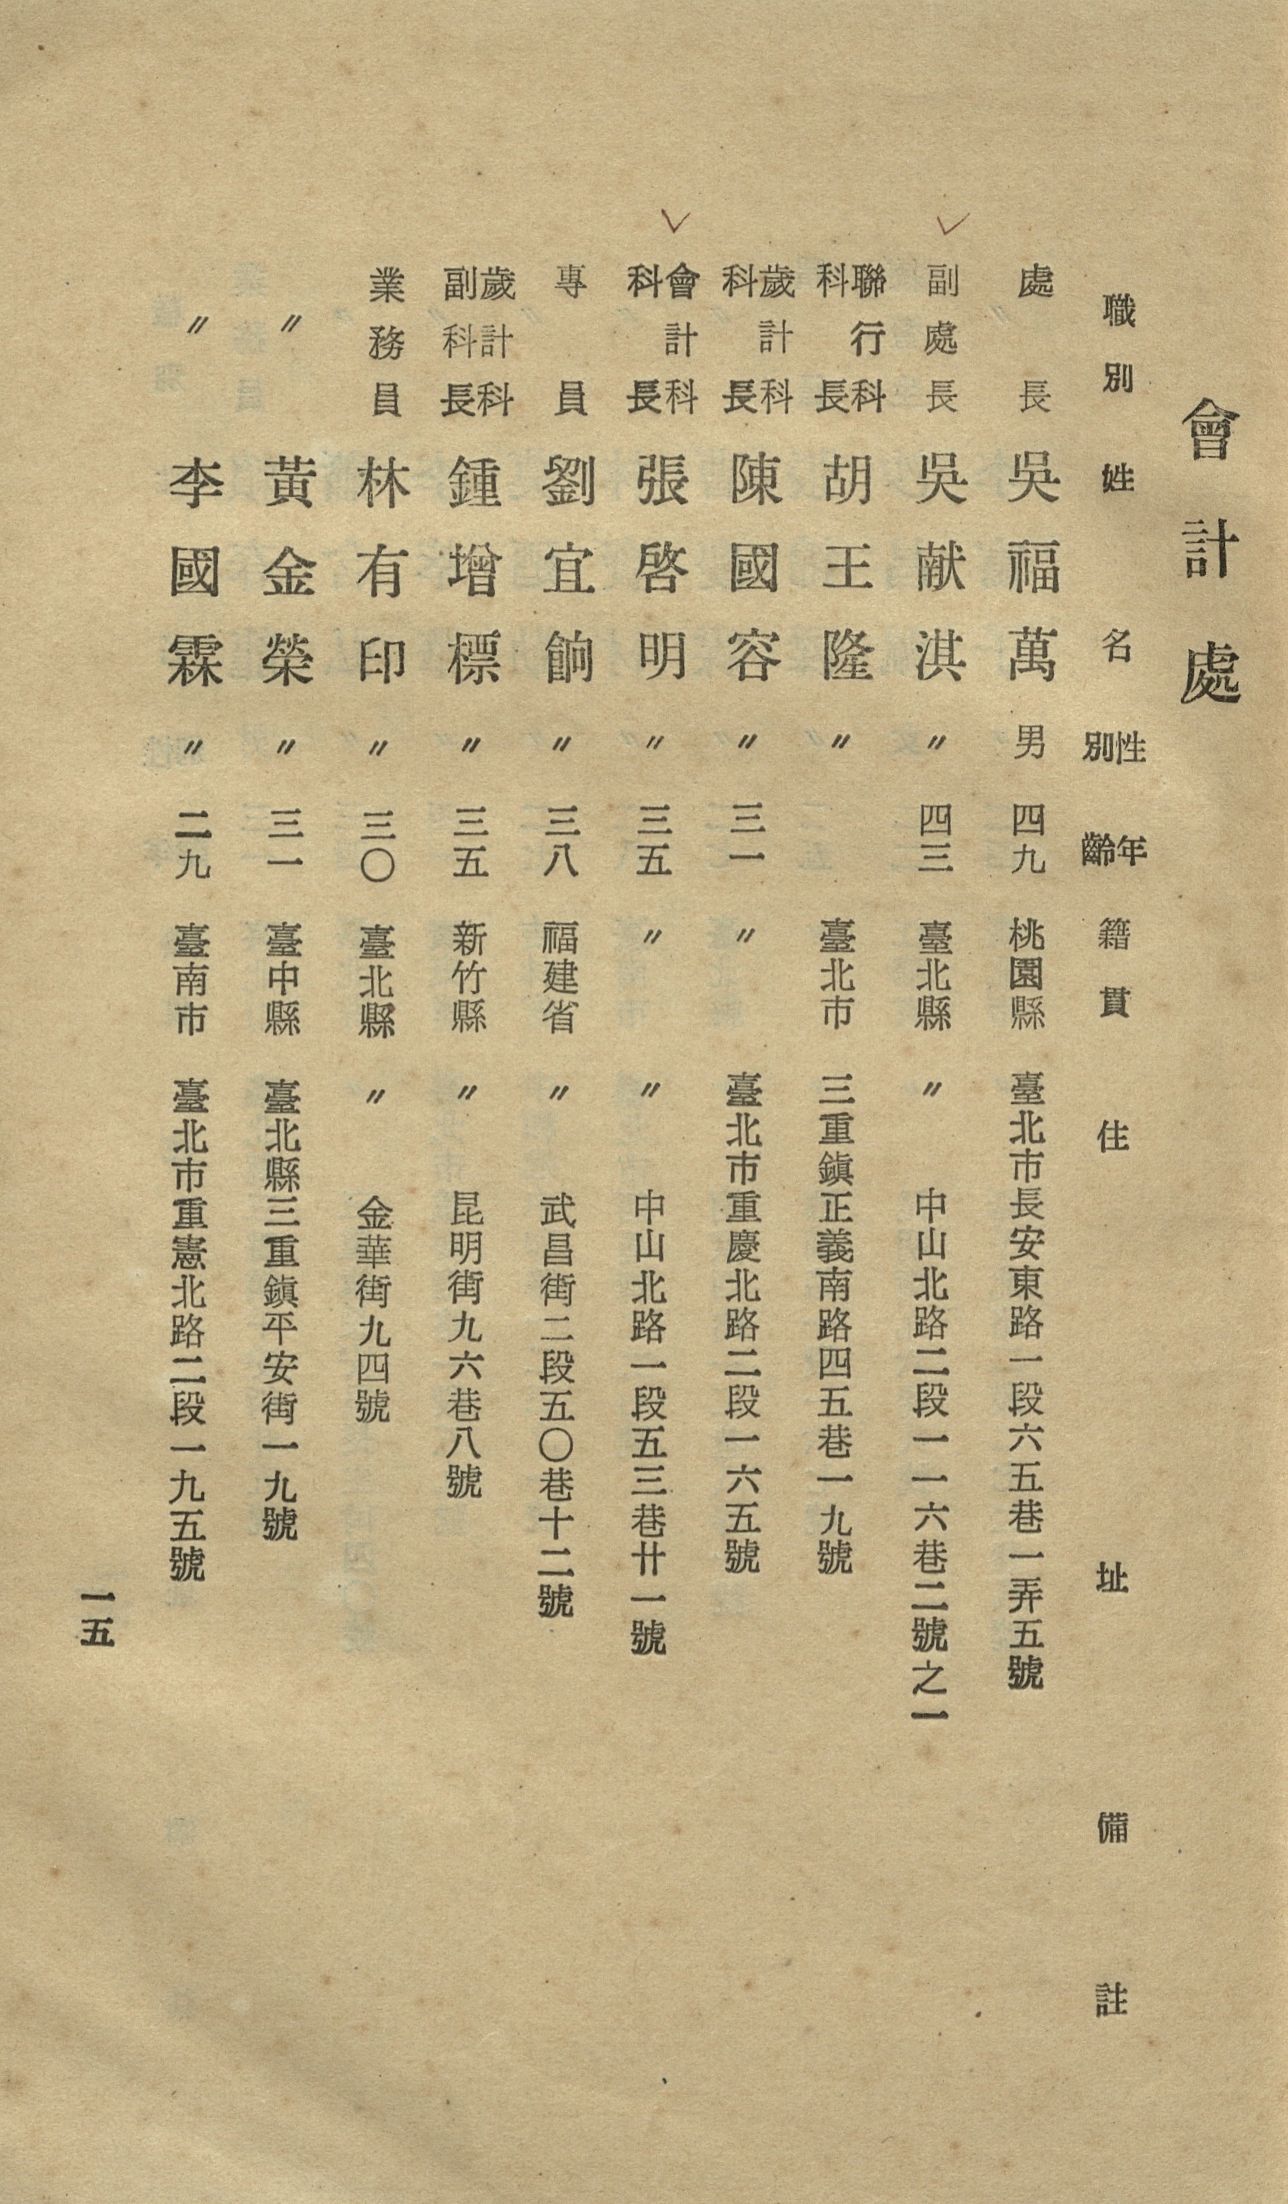 會計處
職別 姓名 性別 年齡 籍貫 住址 備註
處長 吳福萬 男 四九 桃園縣 臺北市長安東路一段六五巷一弄五號
副處長 吳献淇 〃 四三 臺北縣 〃 中山北路二段一一六巷二號之一
聯行科科長 胡王隆 〃 臺北市 三重鎮正義南路四五巷一九號
歲計科科長 陳國容 〃 三一 〃 臺北市重慶北路二段一六五號
會計科科長 張啓明 〃 三五 〃 〃 中山北路一段五三巷廿一號
專員 劉宜餉 〃 三八 福建省 〃 武昌街二段五〇巷十二號
歲計科副科長 鍾增標 〃 三五 新竹縣 〃 昆明街九六巷八號
業務員 林有印 〃 三〇 臺北縣 〃 金華街九四號
〃 黃金榮 〃 三一 臺中縣 臺北縣三重鎮平安街一九號
〃 李國霖 〃 二九 臺南市 臺北市重憲北路二段一九五號
一五